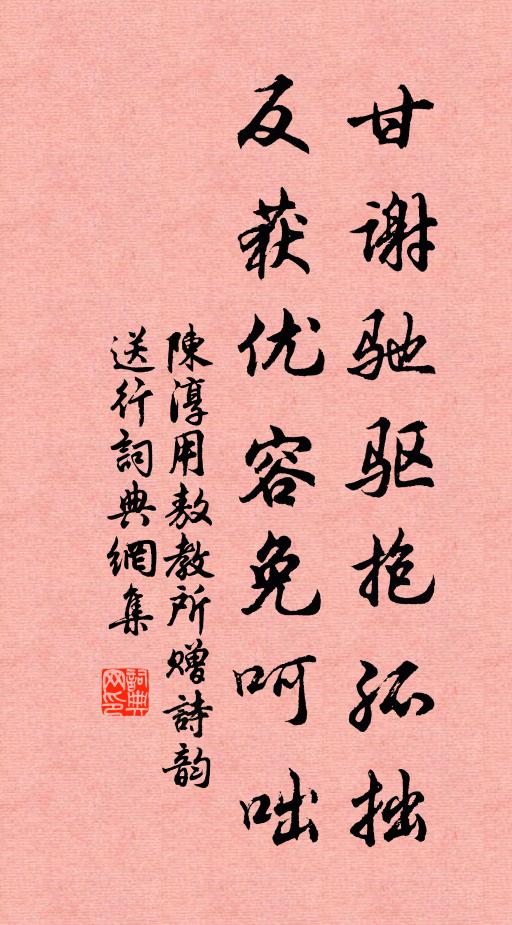 甘谢驰驱抱孤拙
反获优容免呵咄
陳淳用敖教所赠詩韵
送行詞典網集
詞典网印